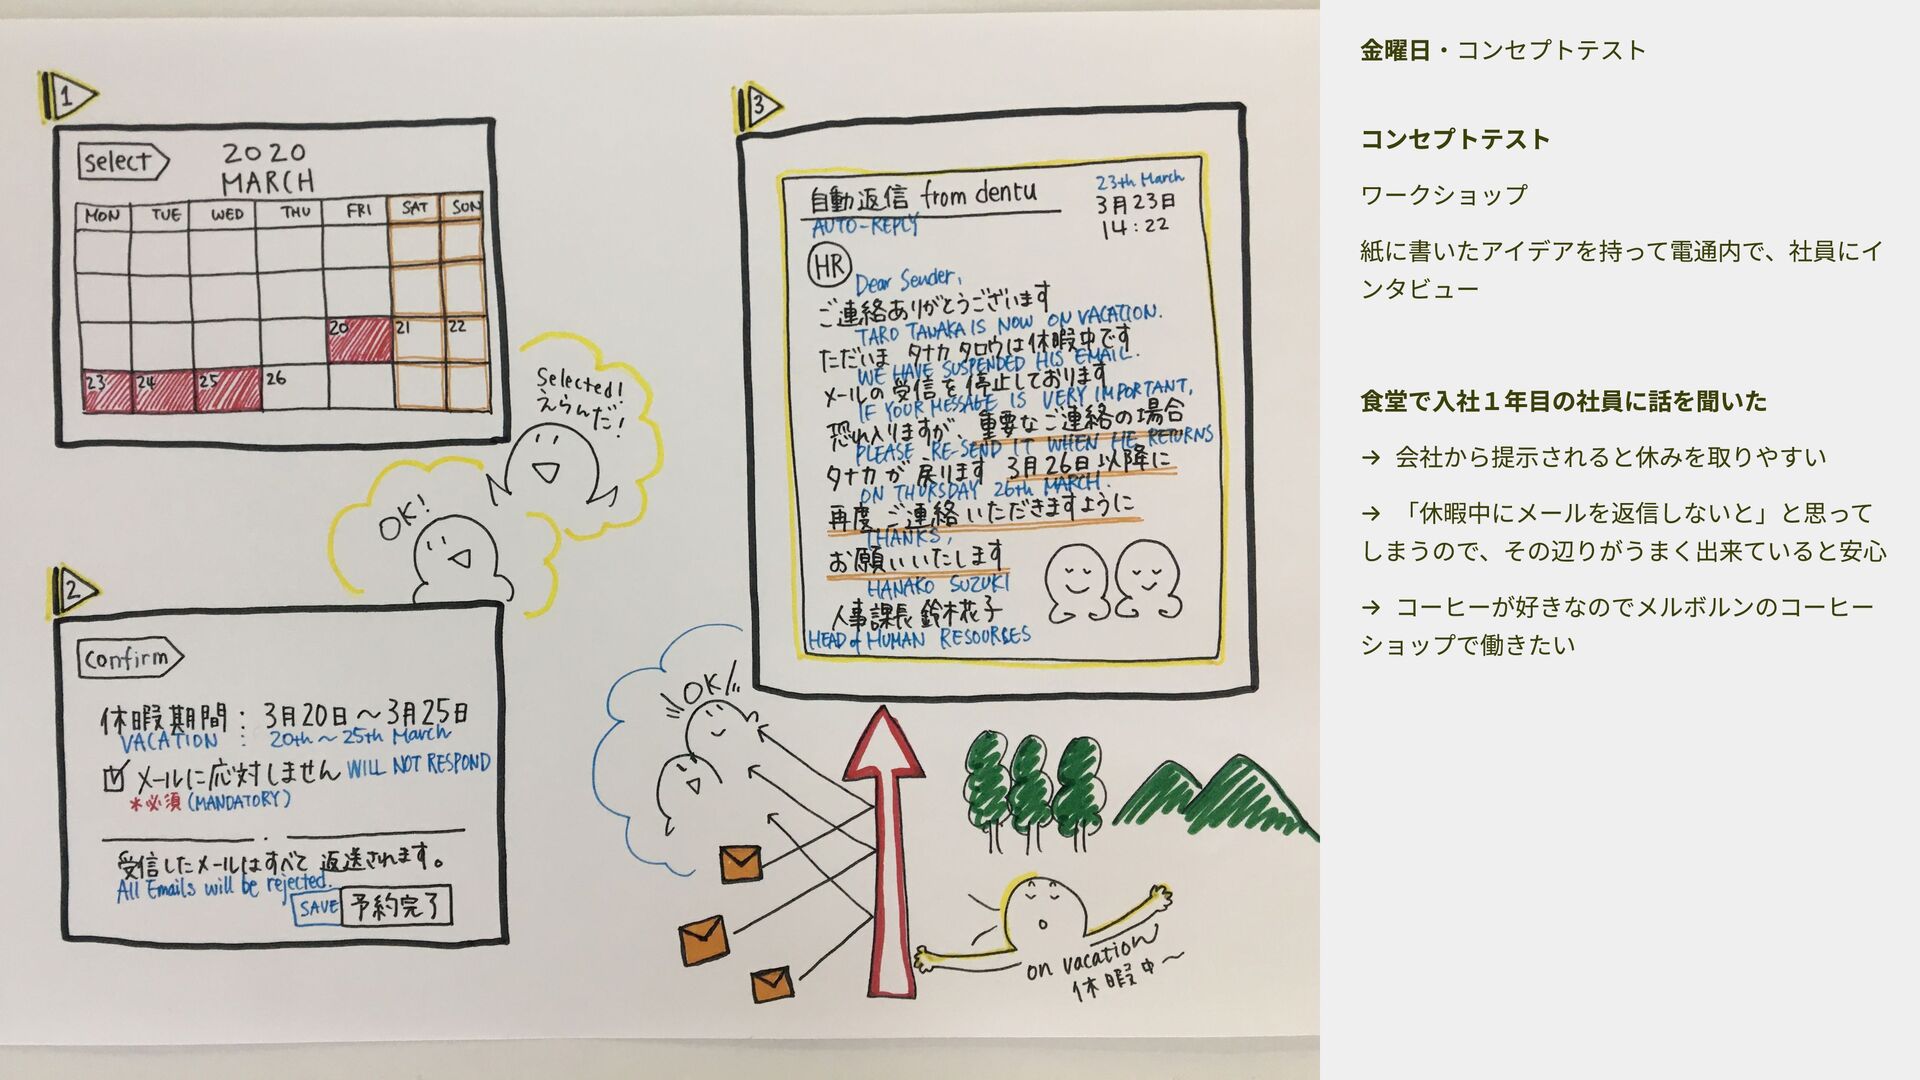 1
select
2020
MARCH
MON TUE WED THU FRI SAT SUN
20 21 22
23 24 25 26
Selected!
えらんだ!
OK!
2
confirm
休暇期間: 3月20日〜3月25日
VACATION : 20th〜25th March
メールに応対しません WILL NOT RESPOND
*必須 (MANDATORY)
受信したメールはすべて返送されます。
All Emails will be rejected.
SAVE 予約完了
3
自動返信 from dentu
AUTO-REPLY
23th March
3月23日
14:22
HR
Dear Sender,
ご連絡ありがとうございます
TARO TANAKA IS NOW ON VACATION.
ただいま タナカ タロウは休暇中です
WE HAVE SUSPENDED HIS EMAIL.
メールの受信を停止しております
IF YOUR MESSAGE IS VERY IMPORTANT,
恐れ入りますが、重要なご連絡の場合
PLEASE RE-SEND IT WHEN HE RETURNS
タナカが戻ります 3月26日以降に
ON THURSDAY 26th MARCH.
再度ご連絡いただきますように
THANKS,
お願いいたします
HANAKO SUZUKI
人事課長 鈴木花子
HEAD of HUMAN RESOURCES
OK!!
on vacation
休暇中〜
金曜日・コンセプトテスト
コンセプトテスト
ワークショップ
紙に書いたアイデアを持って電通内で、社員にイ
ンタビュー
食堂で入社１年目の社員に話を聞いた
→ 会社から提示されると休みを取りやすい
→ 「休暇中にメールを返信しないと」と思って
しまうので、その辺りがうまく出来ていると安心
→ コーヒーが好きなのでメルボルンのコーヒー
ショップで働きたい